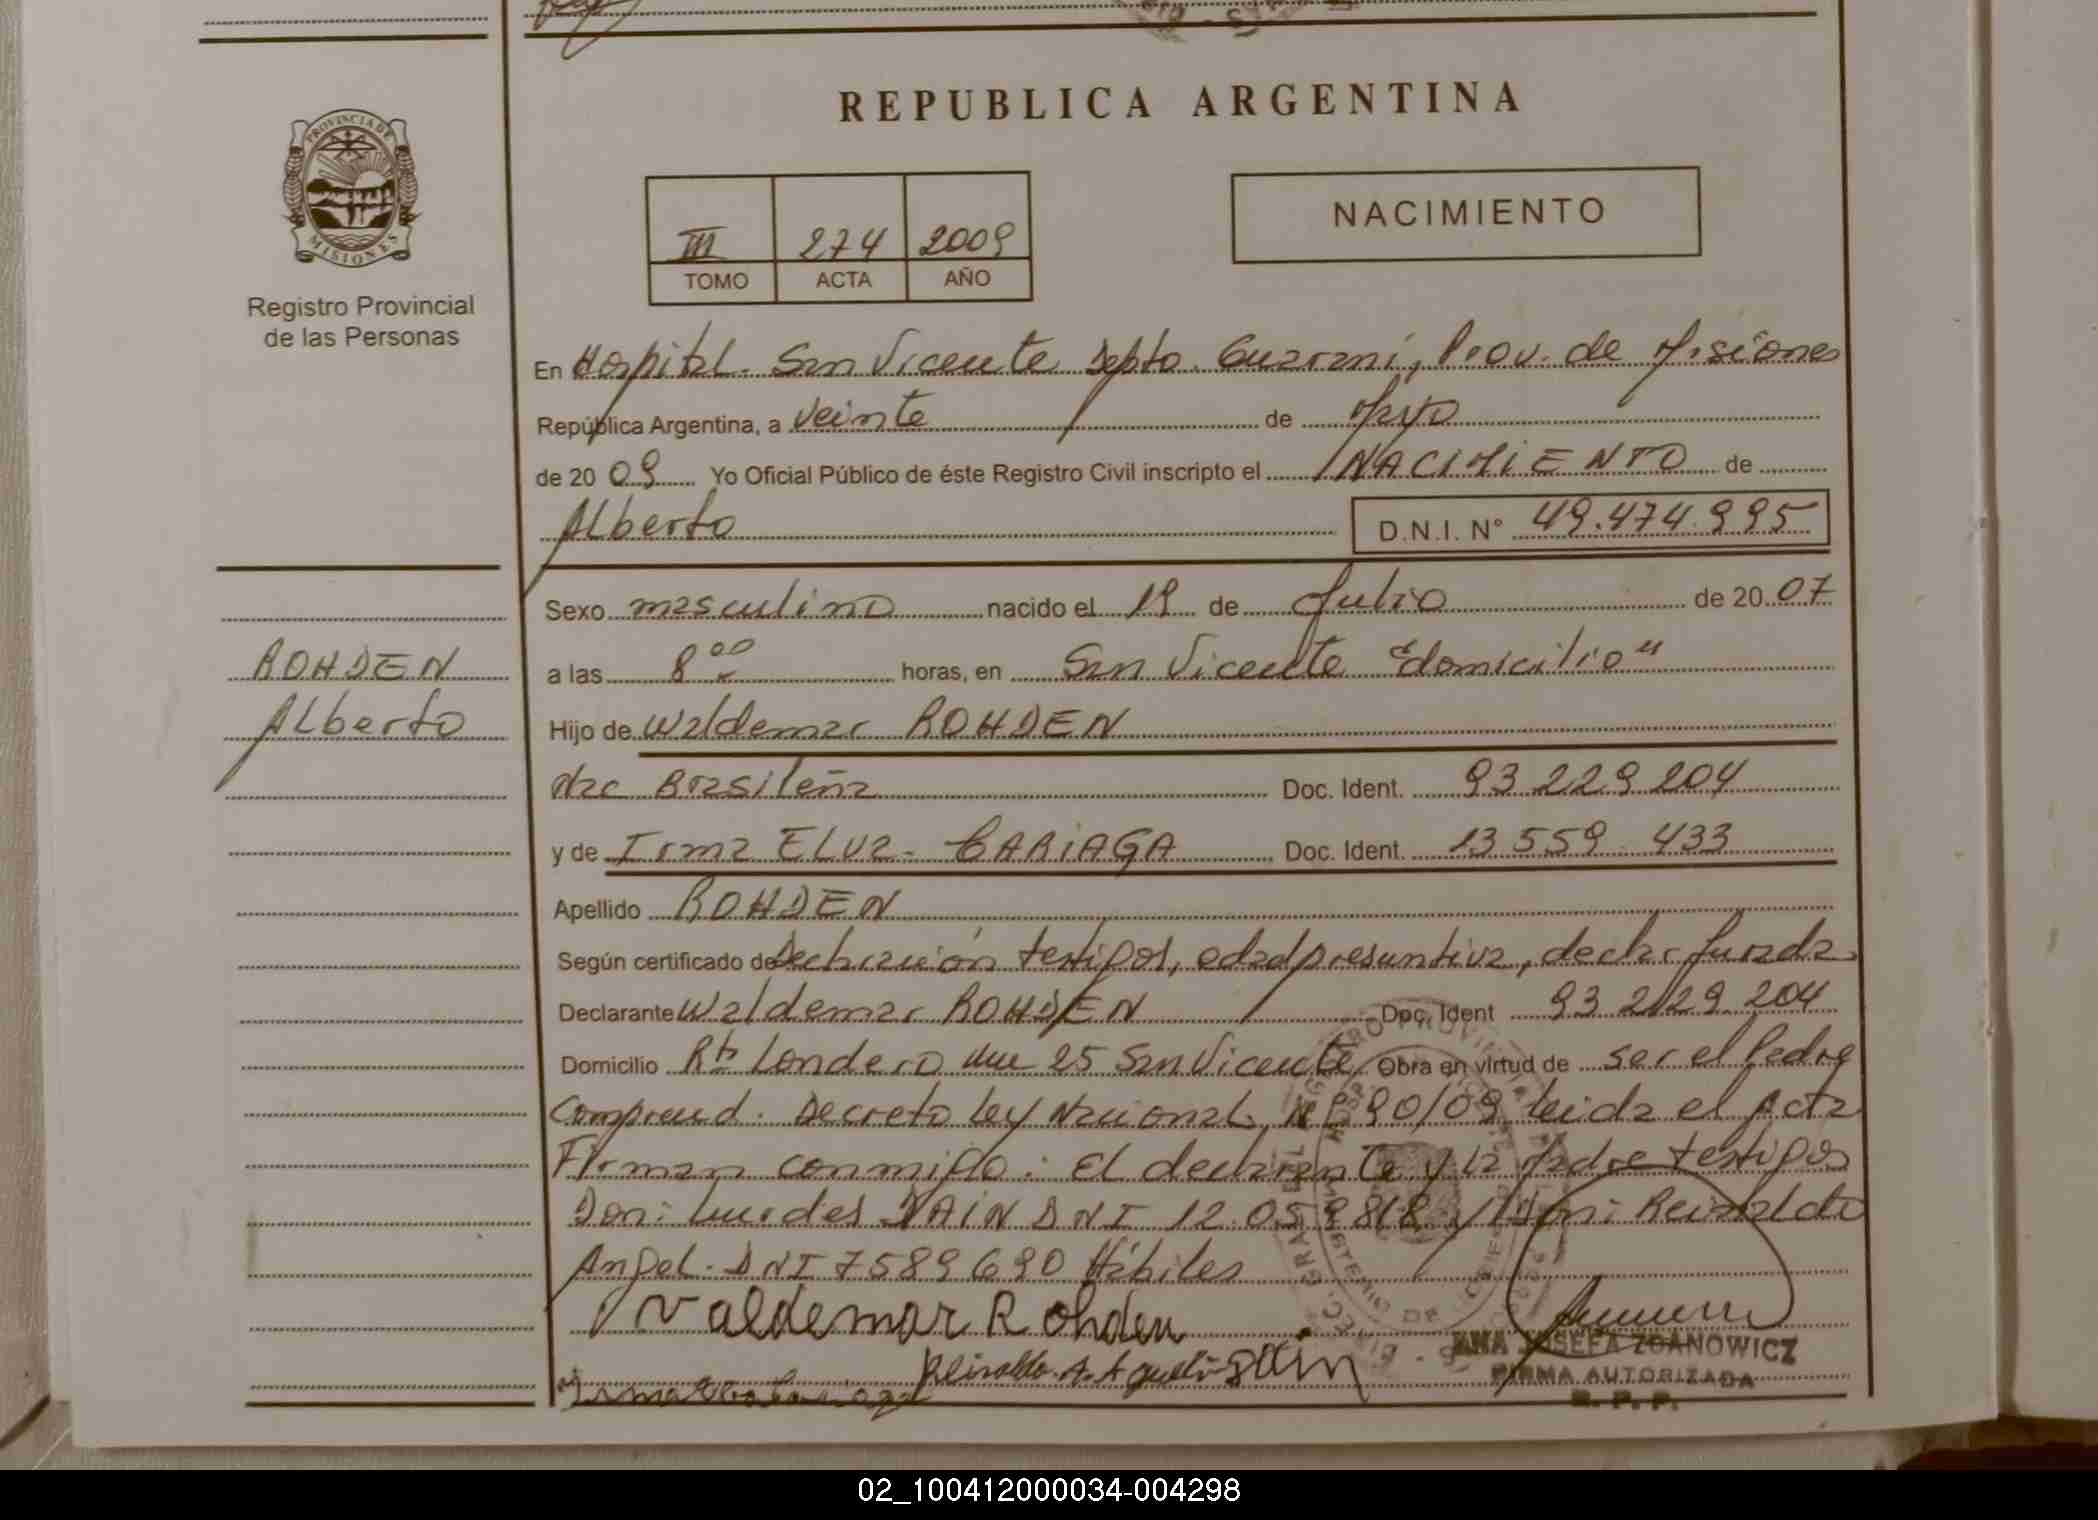 REPUBLICA ARGENTINA
PROVINCIA DE
MISIONES
Registro Provincial
de las Personas
III 274 2009
TOMO ACTA AÑO
NACIMIENTO
En Hospital San Vicente Depto. Guaraní, Prov. de Misiones
República Argentina, a veinte de Mayo
de 20 09 Yo Oficial Público de éste Registro Civil inscripto el NACIMIENTO de
Alberto D.N.I. N° 49.474.995
Sexo masculino nacido el 19 de Julio de 20 07
a las 8 00 horas, en San Vicente "domicilio"
Hijo de Waldemar ROHDEN
Nac Brasileña Doc. Ident. 93 229 204
y de Irma ELVA CARIAGA Doc. Ident. 13 559 433
Apellido ROHDEN
Según certificado de Declaración testigos, edad presuntiva, declar Jurada
Declarante Waldemar ROHDEN Doc. Ident 93 229.204
Domicilio Londero 25 San Vicente Obra en virtud de ser el Padre
Comprend. Decreto Ley Nacional N° 90/09 leida el Acta
Firman conmigo: El declarante y la Madre testigos
Don: Lurdes DNI 12 059 818 y Don: Reinaldo
Angel. DNI 7589690 Hábiles
Valdemar Rohden
ROHDEN
Alberto
ANA JOSEFA ZDANOWICZ
FIRMA AUTORIZADA
R. P. P.
02_100412000034-004298